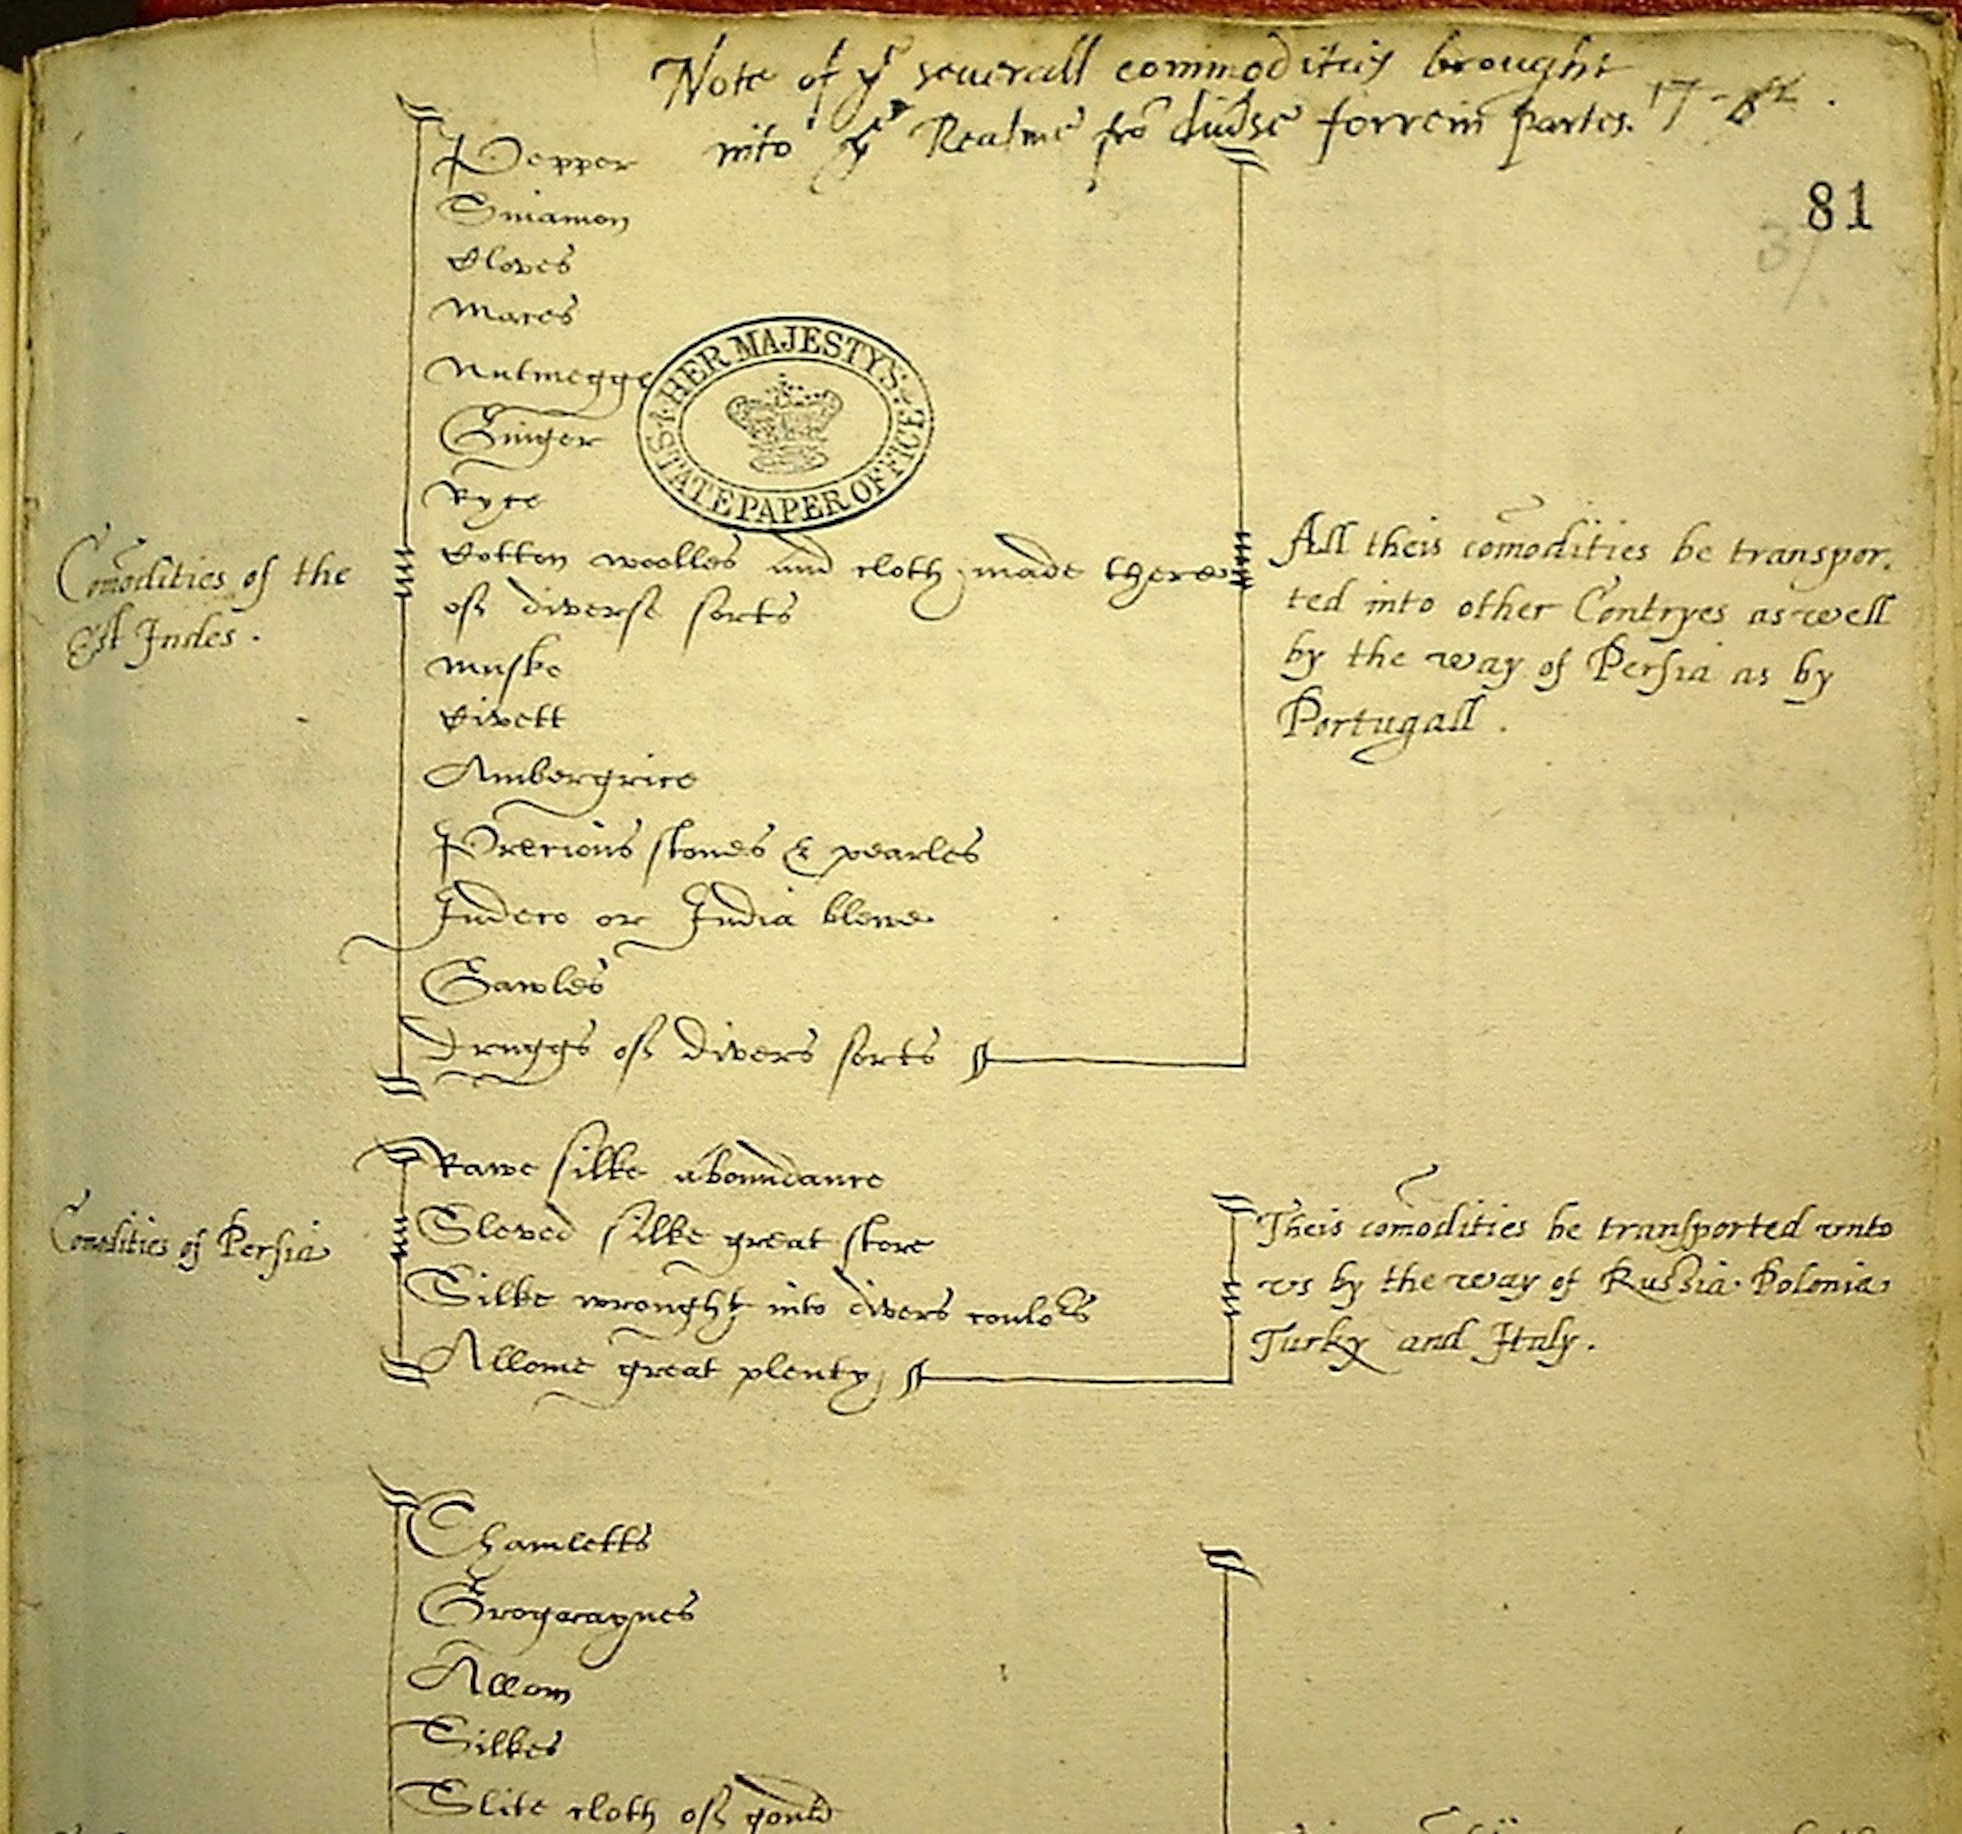 Note of yᵉ seuerall commodities brought
into yᵉ Realme frō diuˢse forrein partes. 17 -
81
37
Comodities of the
Est Indes .
Pepper
Sinamon
Cloves
Maces
Nutmegge
Ginger
Ryce
Cotton woolles and cloth made there
of diverse sorts
Muske
Civett
Ambergrice
Precious stones & pearles
Indeco or India blewe
Gawles
Druggs of divers sorts
HER MAJESTY'S
STATE PAPER OFFICE
All theis comodities be transpor.
ted into other Contryes as well
by the way of Persia as by
Portugall .
Comodities of Persia
Rawe silke aboundance
Sleved silke great store
Silke wrought into divers coulors
Allome great plenty
Theis comodities be transported vnto
vs by the way of Russia Polonia
Turky and Italy .
Chamletts
Grograynes
Allom
Silkes
Slite cloth of gould